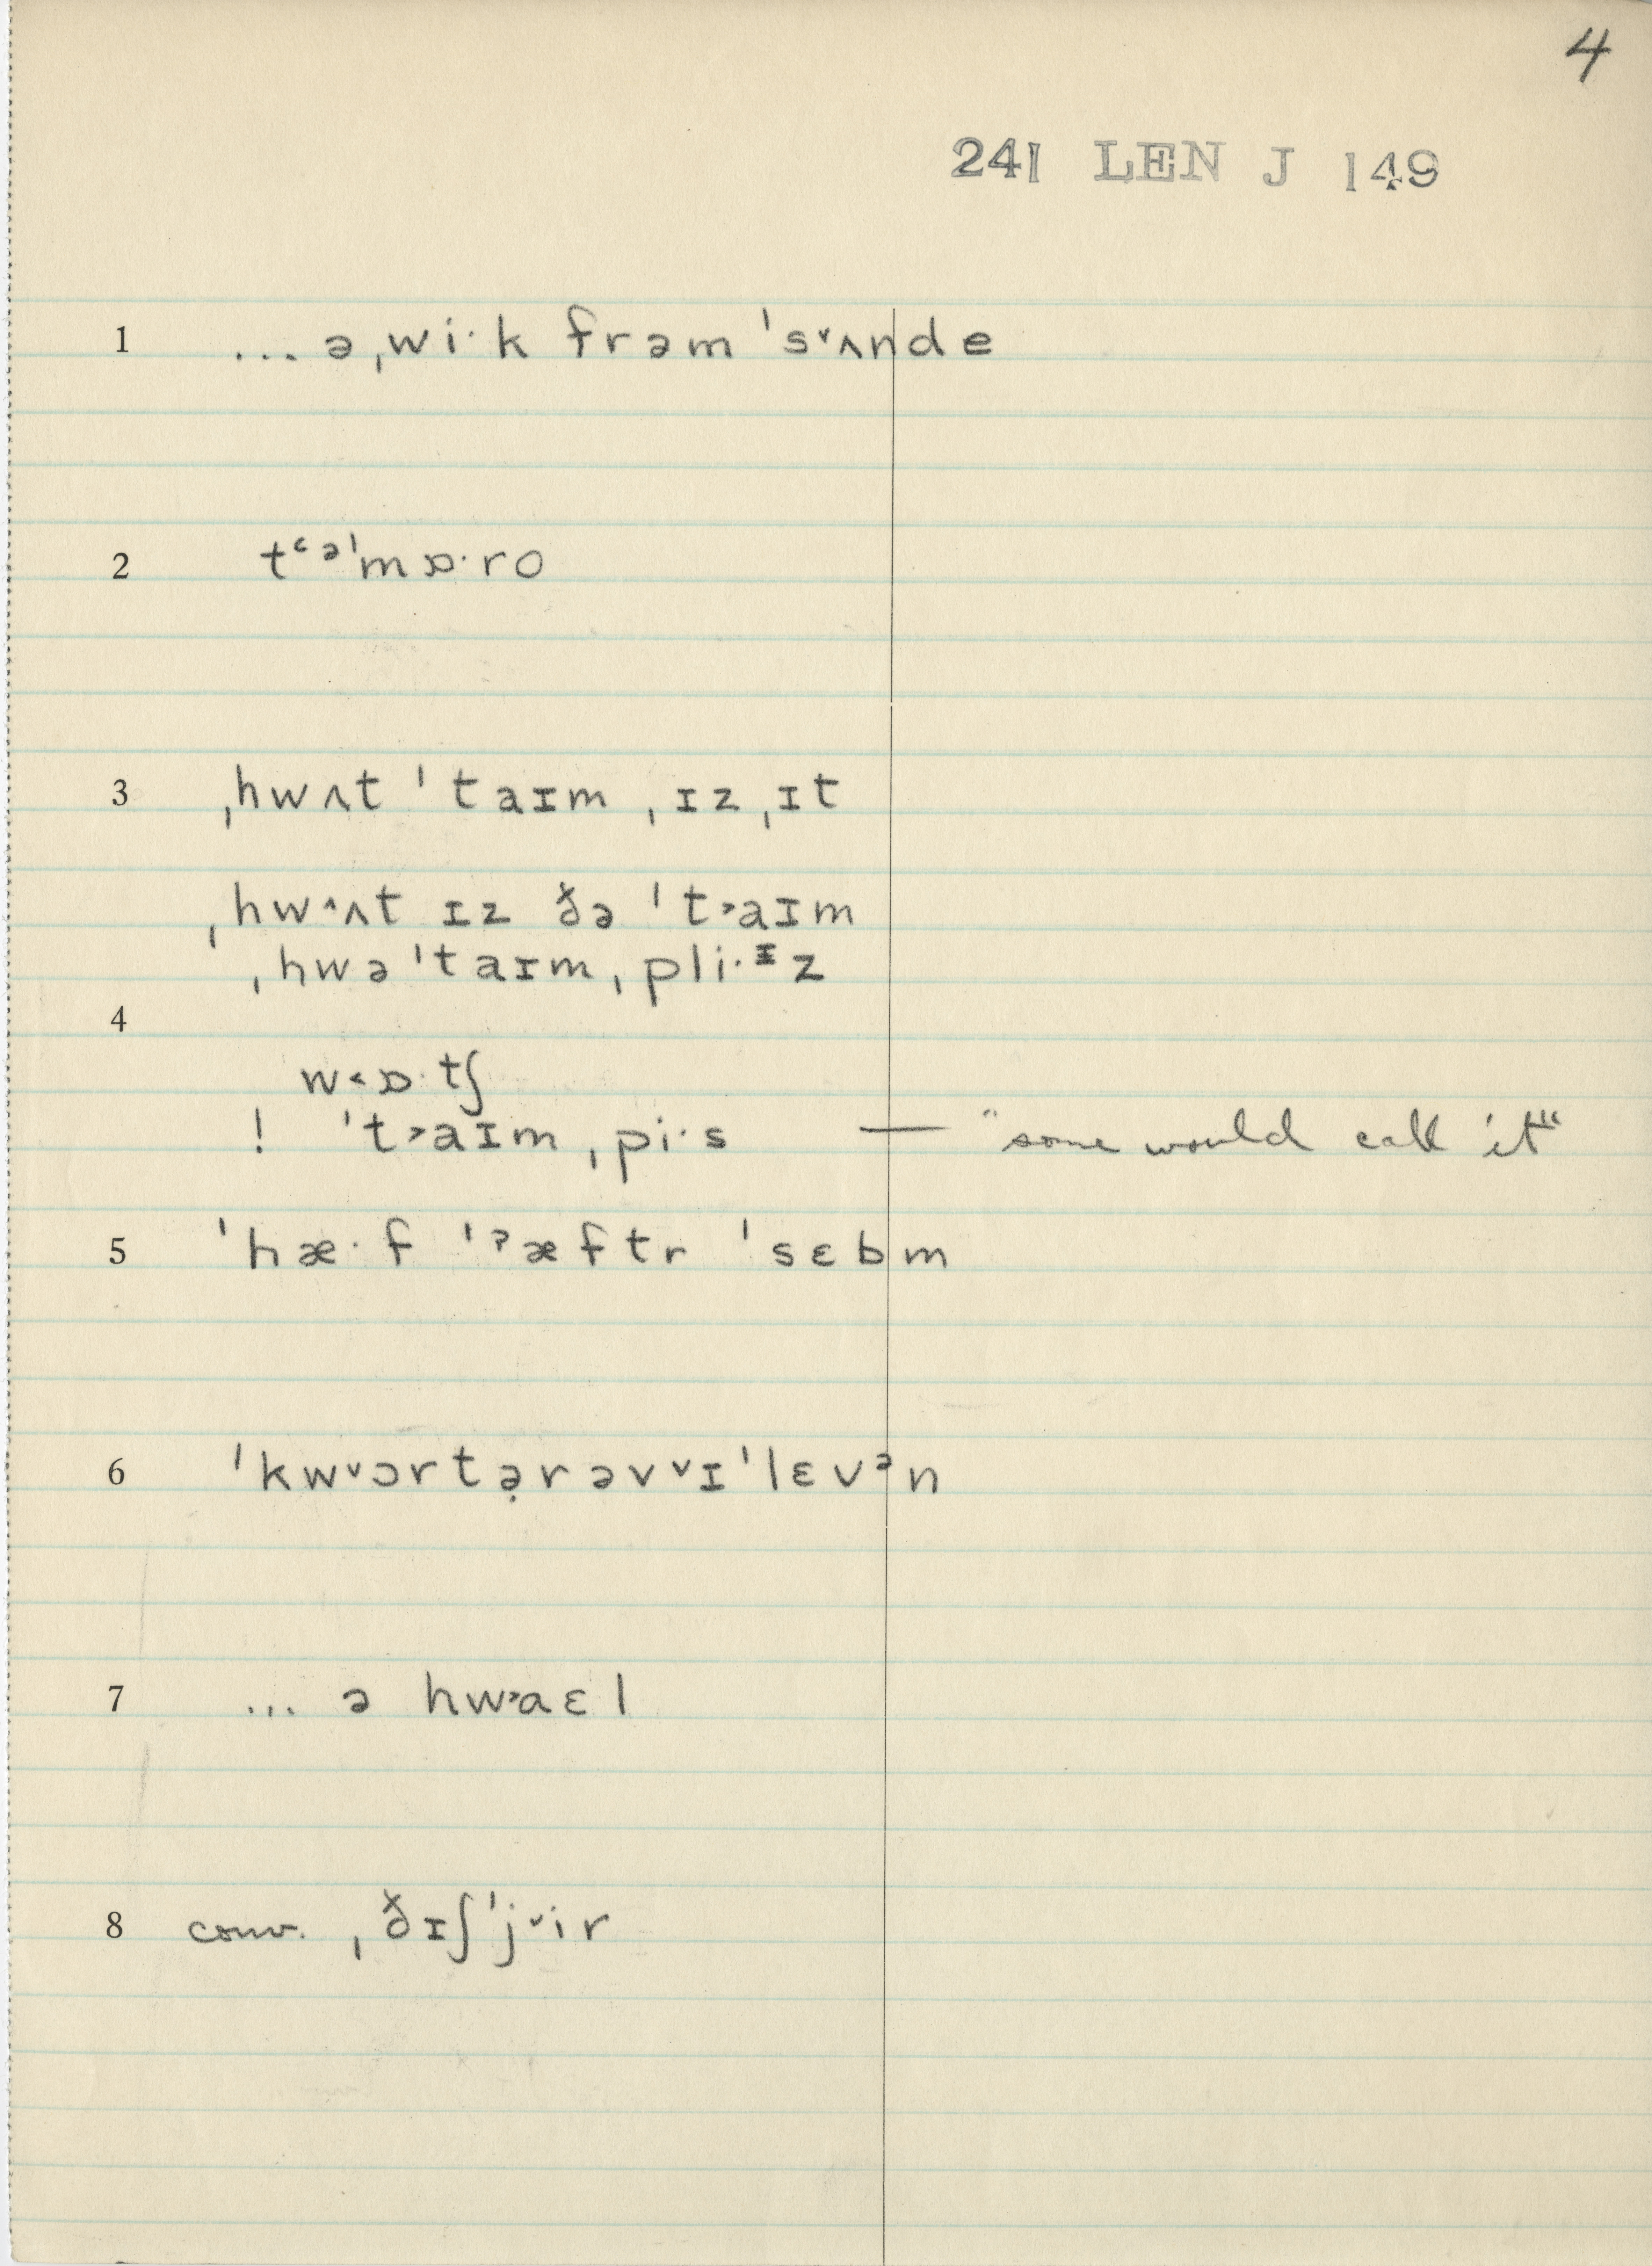 4
241 LEN J 149
1 ... ə ˌwi·k frəm ˈs˅ʌnde
2 tʿəˈmɒ·ro
3 ˌhwʌt ˈtaɪm ˌɪz ˌɪt
ˌhw˄ʌt ɪz ðə ˈt˃aɪm
ˌhwəˈtaɪm ˌpli·ᶦz
4
w˂ɒ·tʃ
! ˈt˃aɪm ˌpi·s — "some would call it"
5 ˈhæ·f ˈˀæftr ˈsɛbm
6 ˈkw˅ɔrtə̣rəv˅ɪˈlɛvᵊn
7 ... ə hw˃aɛl
8 conv. ˌðɪʃˈj˅ir